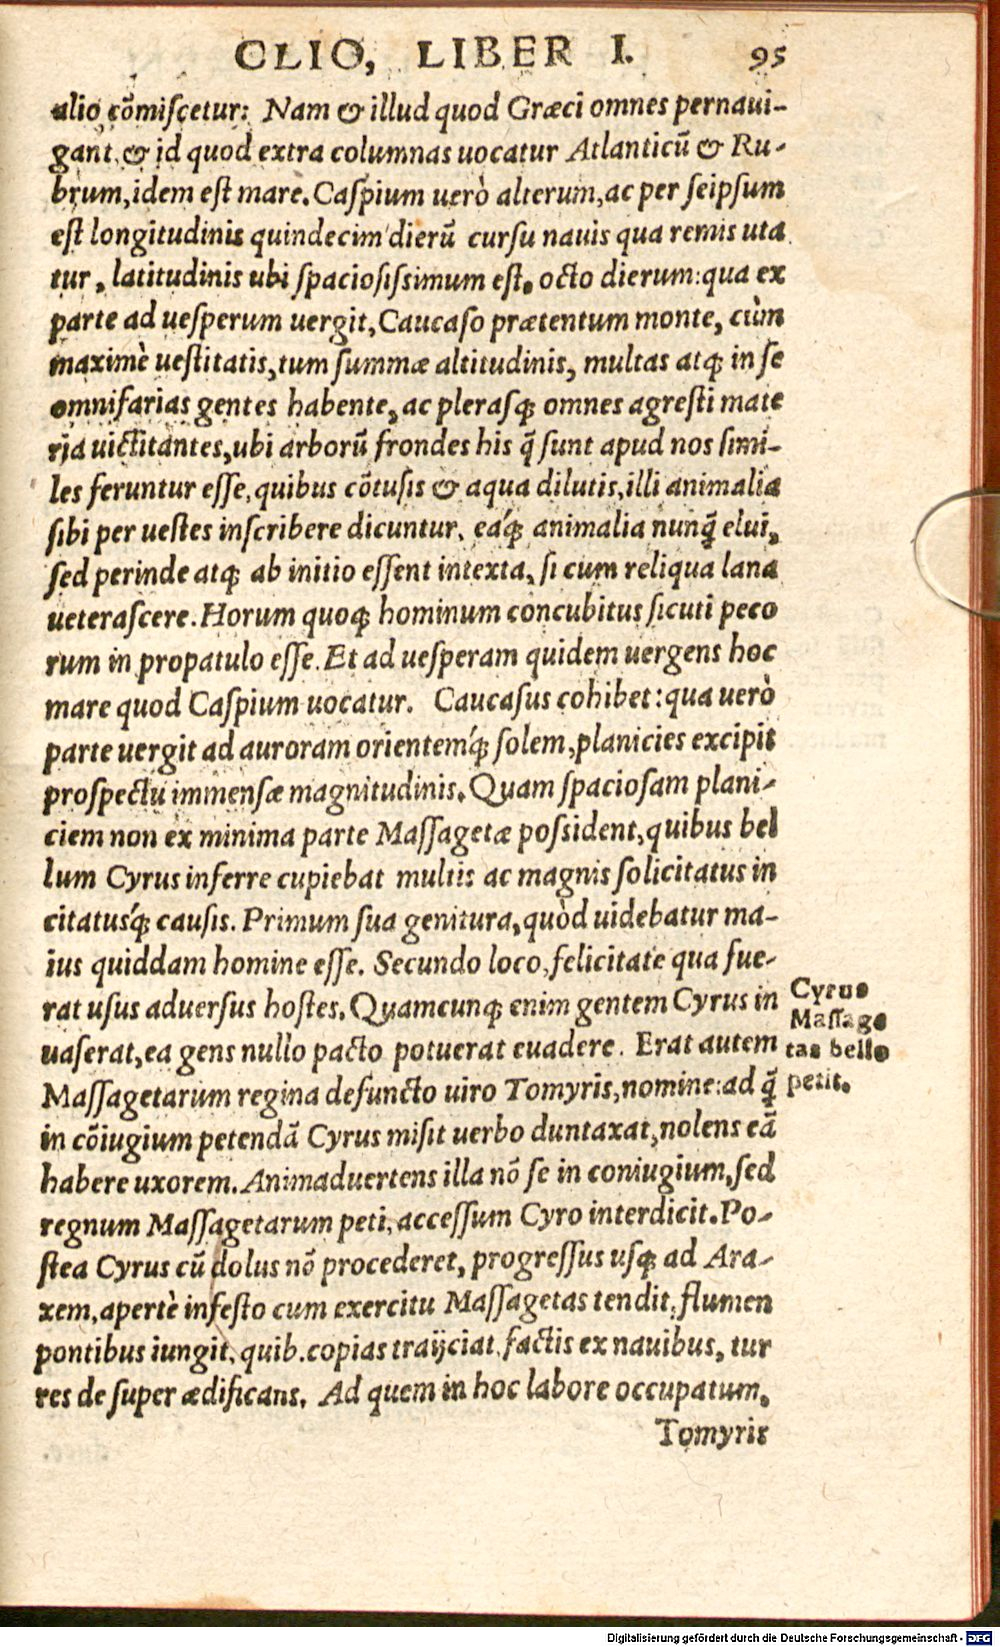 CLIO, LIBER I. 95
alio cõmiſcetur: Nam & illud quod Græci omnes pernaui-
gant, & id quod extra columnas uocatur Atlanticũ & Ru-
brum, idem eſt mare. Caſpium uerò alterum, ac per ſeipſum
eſt longitudinis quindecim dierũ curſu nauis qua remis uta
tur, latitudinis ubi ſpacioſiſsimum eſt, octo dierum: qua ex
parte ad ueſperum uergit, Caucaſo prætentum monte, cùm
maximè ueſtitatis, tum ſummæ altitudinis, multas atqꝫ in ſe
omnifarias gentes habente, ac pleraſqꝫ omnes agreſti mate
ria uictitantes, ubi arborũ frondes his q̃ ſunt apud nos ſimi-
les feruntur eſſe, quibus cõtuſis & aqua dilutis, illi animalia
ſibi per ueſtes inſcribere dicuntur, eáqꝫ animalia nunq̃ elui,
ſed perinde atqꝫ ab initio eſſent intexta, ſi cum reliqua lana
ueteraſcere. Horum quoqꝫ hominum concubitus ſicuti peco
rum in propatulo eſſe. Et ad ueſperam quidem uergens hoc
mare quod Caſpium uocatur. Caucaſus cohibet: qua uerò
parte uergit ad auroram orientemqꝫ́ ſolem, planicies excipit
proſpectu immenſæ magnitudinis. Quam ſpacioſam plani-
ciem non ex minima parte Maſſagetæ poſsident, quibus bel
lum Cyrus inferre cupiebat multis ac magnis ſolicitatus in
citatusqꝫ́ cauſis. Primum ſua genitura, quòd uidebatur ma-
ius quiddam homine eſſe. Secundo loco, felicitate qua fue-
rat uſus aduerſus hoſtes. Quamcunqꝫ enim gentem Cyrus in
uaſerat, ea gens nullo pacto potuerat euadere. Erat autem
Maſſagetarum regina defuncto uiro Tomyris, nomine: ad q̃
in cõiugium petendã Cyrus miſit uerbo duntaxat, nolens eã
habere uxorem. Animaduertens illa nõ ſe in coniugium, ſed
regnum Maſſagetarum peti, acceſſum Cyro interdicit. Po-
ſtea Cyrus cũ dolus nõ procederet, progreſſus uſqꝫ ad Ara-
xem, apertè infeſto cum exercitu Maſſagetas tendit, flumen
pontibus iungit, quib. copias traijciat, factis ex nauibus, tur
res de ſuper ædificans. Ad quem in hoc labore occupatum,
Tomyris
Cyrus
Maſſage
tas bello
petit.
Digitalisierung gefördert durch die Deutsche Forschungsgemeinschaft - DFG